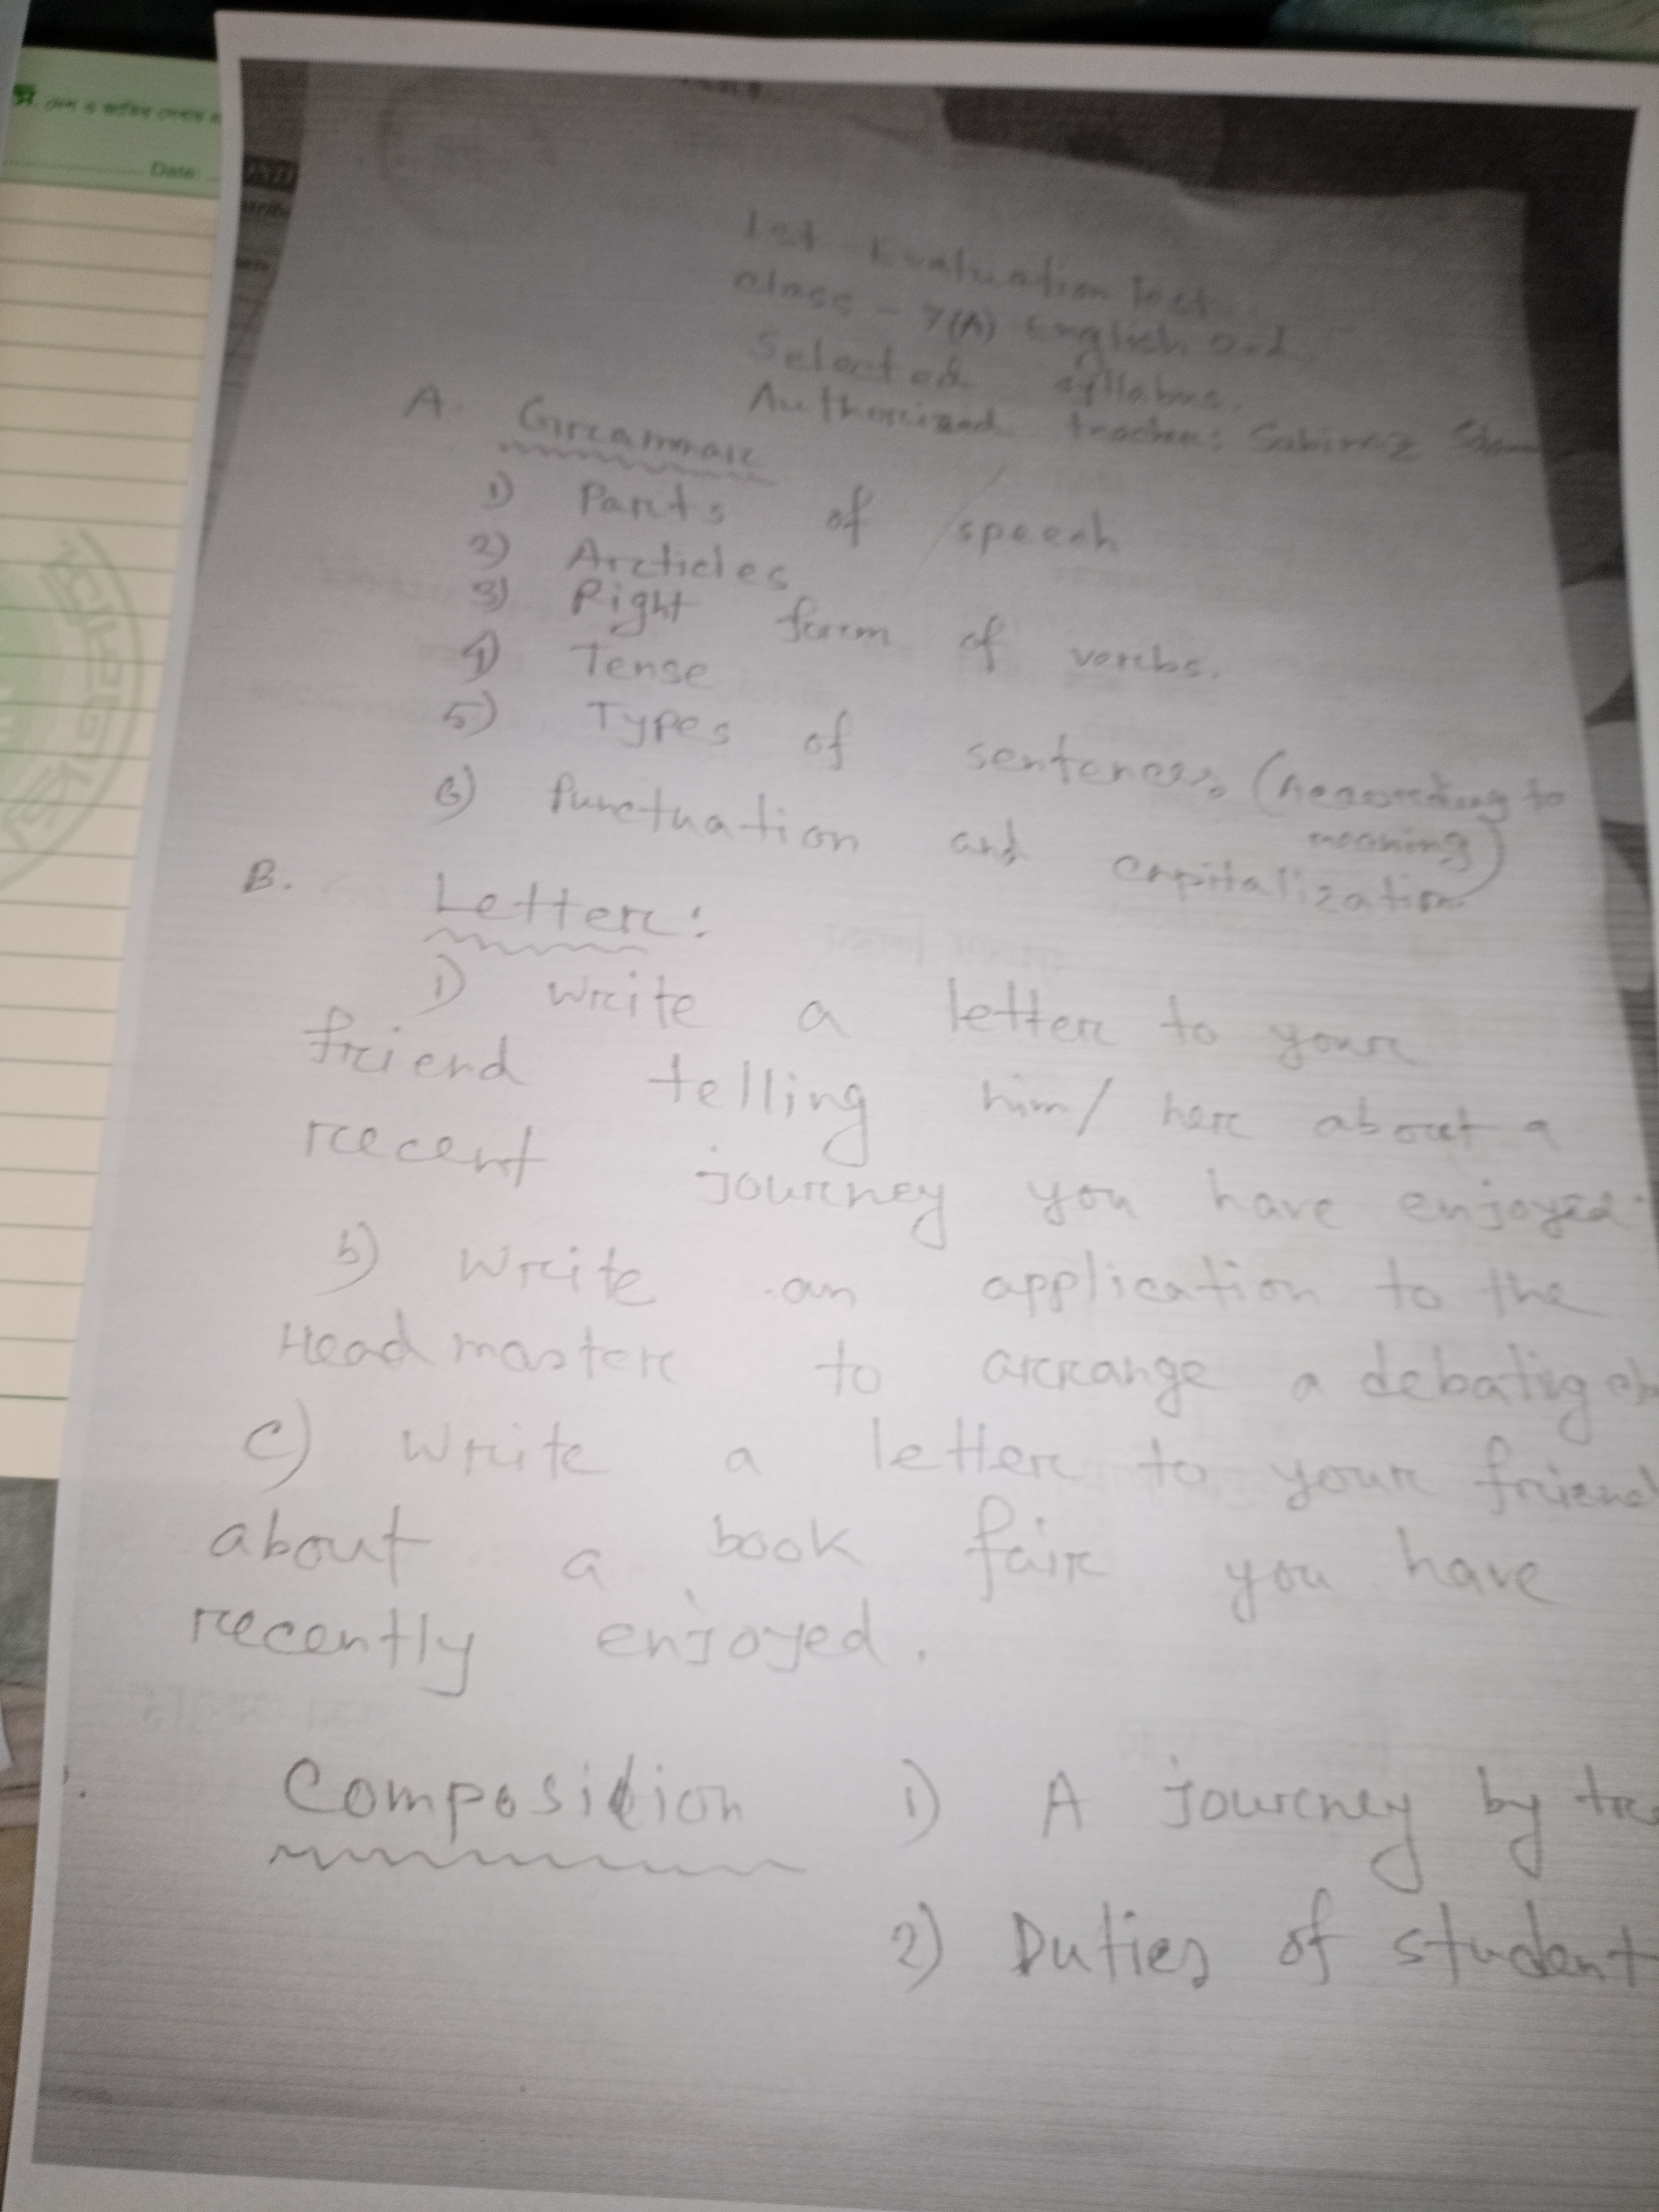 Date:
1st Evaluation Test
class - 7(A) English 2nd
Selected syllabus.
Authorized teacher:
A. Grammar
1) Parts of speech
2) Articles
3) Right form of verbs.
4) Tense
5) Types of sentences (According to
meaning)
6) Punctuation and capitalization
B. Letter:
1) Write a letter to your
friend telling him/ her about a
recent journey you have enjoyed.
b) Write an application to the
Head master to arrange a debating
c) Write a letter to your friend
about a book fair you have
recently enjoyed.
Composition 1) A journey by
2) Duties of student